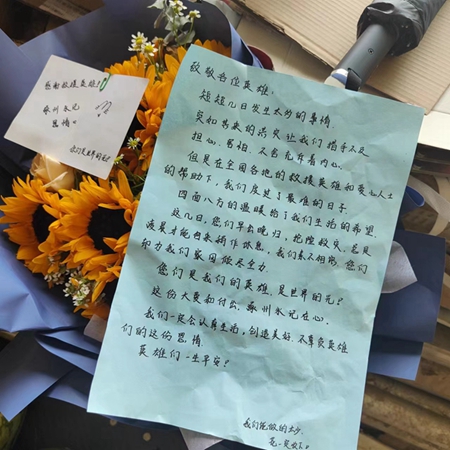 感谢救援英雄！
涿州永记
恩情。
你们是世界的光
致敬各位英雄：
短短几日发生太多的事情，
突如其来的洪灾让我们措手不及
担心、害怕、不舍充斥着内心，
但是在全国各地的救援英雄和爱心人士
的帮助下，我们度过了最难的日子。
四面八方的温暖给了我们生活的希望
这几日，您们早出晚归，抢险救灾，甚至
凌晨才能回来稍作休息，我们素不相识，您们
却为我们家园拼尽全力。
您们是我们的英雄，是世界的光！
这份大爱和付出，涿州永记在心。
我们一定会认真生活，创造美好，不辜负英雄
们的这份恩情
英雄们一生平安！
我们能做的太少